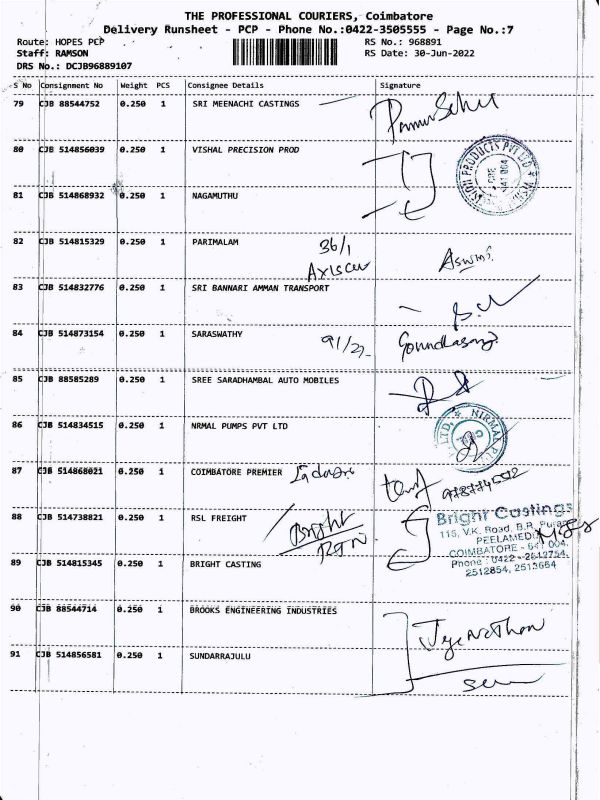 THE PROFESSIONAL COURIERS, Coimbatore
Delivery Runsheet - PCP - Phone No.:0422-3505555 - Page No.:7
Route: HOPES PCP
RS No.: 968891
Staff: RAMSON
RS Date: 30-Jun-2022
DRS No.: DCJB96889107
S No Consignment No Weight PCS Consignee Details Signature
79 CJB 88544752 0.250 1 SRI MEENACHI CASTINGS
80 CJB 514856039 0.250 1 VISHAL PRECISION PROD
81 CJB 514868932 0.250 1 NAGAMUTHU
82 CJB 514815329 0.250 1 PARIMALAM 36/1
83 CJB 514832776 0.250 1 SRI BANNARI AMMAN TRANSPORT
84 CJB 514873154 0.250 1 SARASWATHY
85 CJB 88585289 0.250 1 SREE SARADHAMBAL AUTO MOBILES
86 CJB 514834515 0.250 1 NRMAL PUMPS PVT LTD
87 CJB 514868021 0.250 1 COIMBATORE PREMIER
88 CJB 514738821 0.250 1 RSL FREIGHT Bright
Bright Castings
115, V.K. Road, B.R.
PEELAMEDU
COIMBATORE - 641 004.
Phone : 0422 - 2612754,
2512854, 2513654
89 CJB 514815345 0.250 1 BRIGHT CASTING
90 CJB 88544714 0.250 1 BROOKS ENGINEERING INDUSTRIES
91 CJB 514856581 0.250 1 SUNDARRAJULU